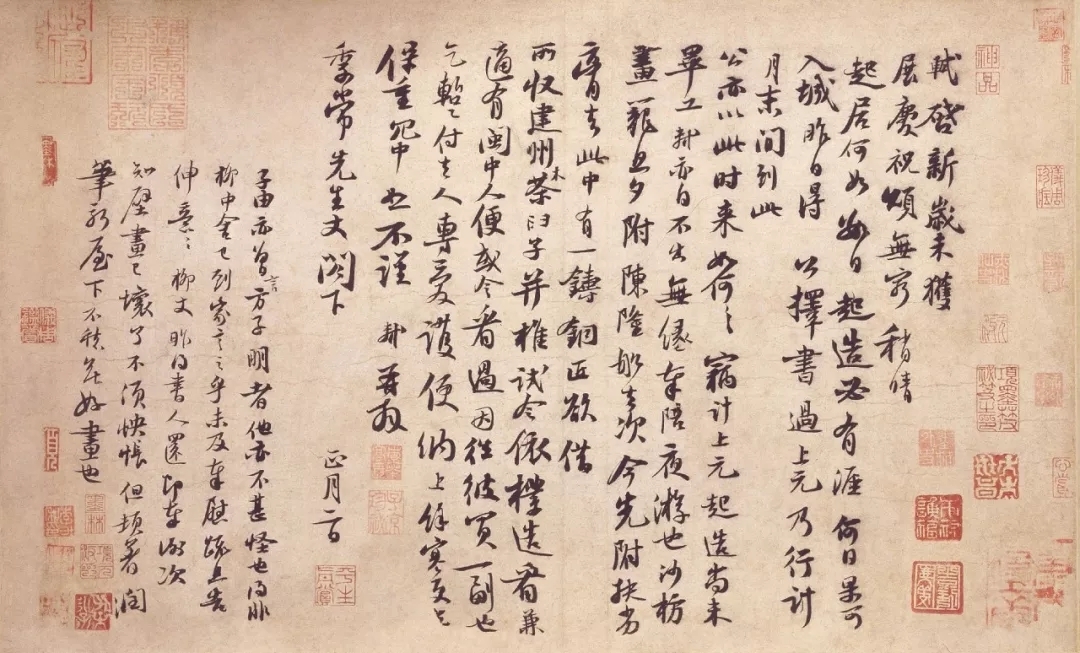 軾啓新歲未獲
展慶祝頌無窮稍晴
起居何如數日起造必有涯何日果可
入城昨日得公擇書過上元乃行計
月末間到此
公亦以此時來如何如何竊計上元起造尚未
畢工軾亦自不出無緣奉陪夜游也沙枋
畫籠旦夕附陳隆船去次今先附扶劣
膏去此中有一鑄銅匠欲借
所收建州木茶臼子并椎試令依樣造看兼
適有閩中人便或令看過因往彼買一副也
乞暫付去人專愛護便納上餘寒更乞
保重冗中恕不謹軾再拜
季常先生丈閣下
正月二日
子由亦曾言方子明者他亦不甚怪也得非
柳中舍已到家言之乎未及奉慰疏且告
伸意伸意柳丈昨得書人還即奉謝次
知壁畫已壞了不須怏悵但頓著潤
筆新屋下不愁無好畫也
神品